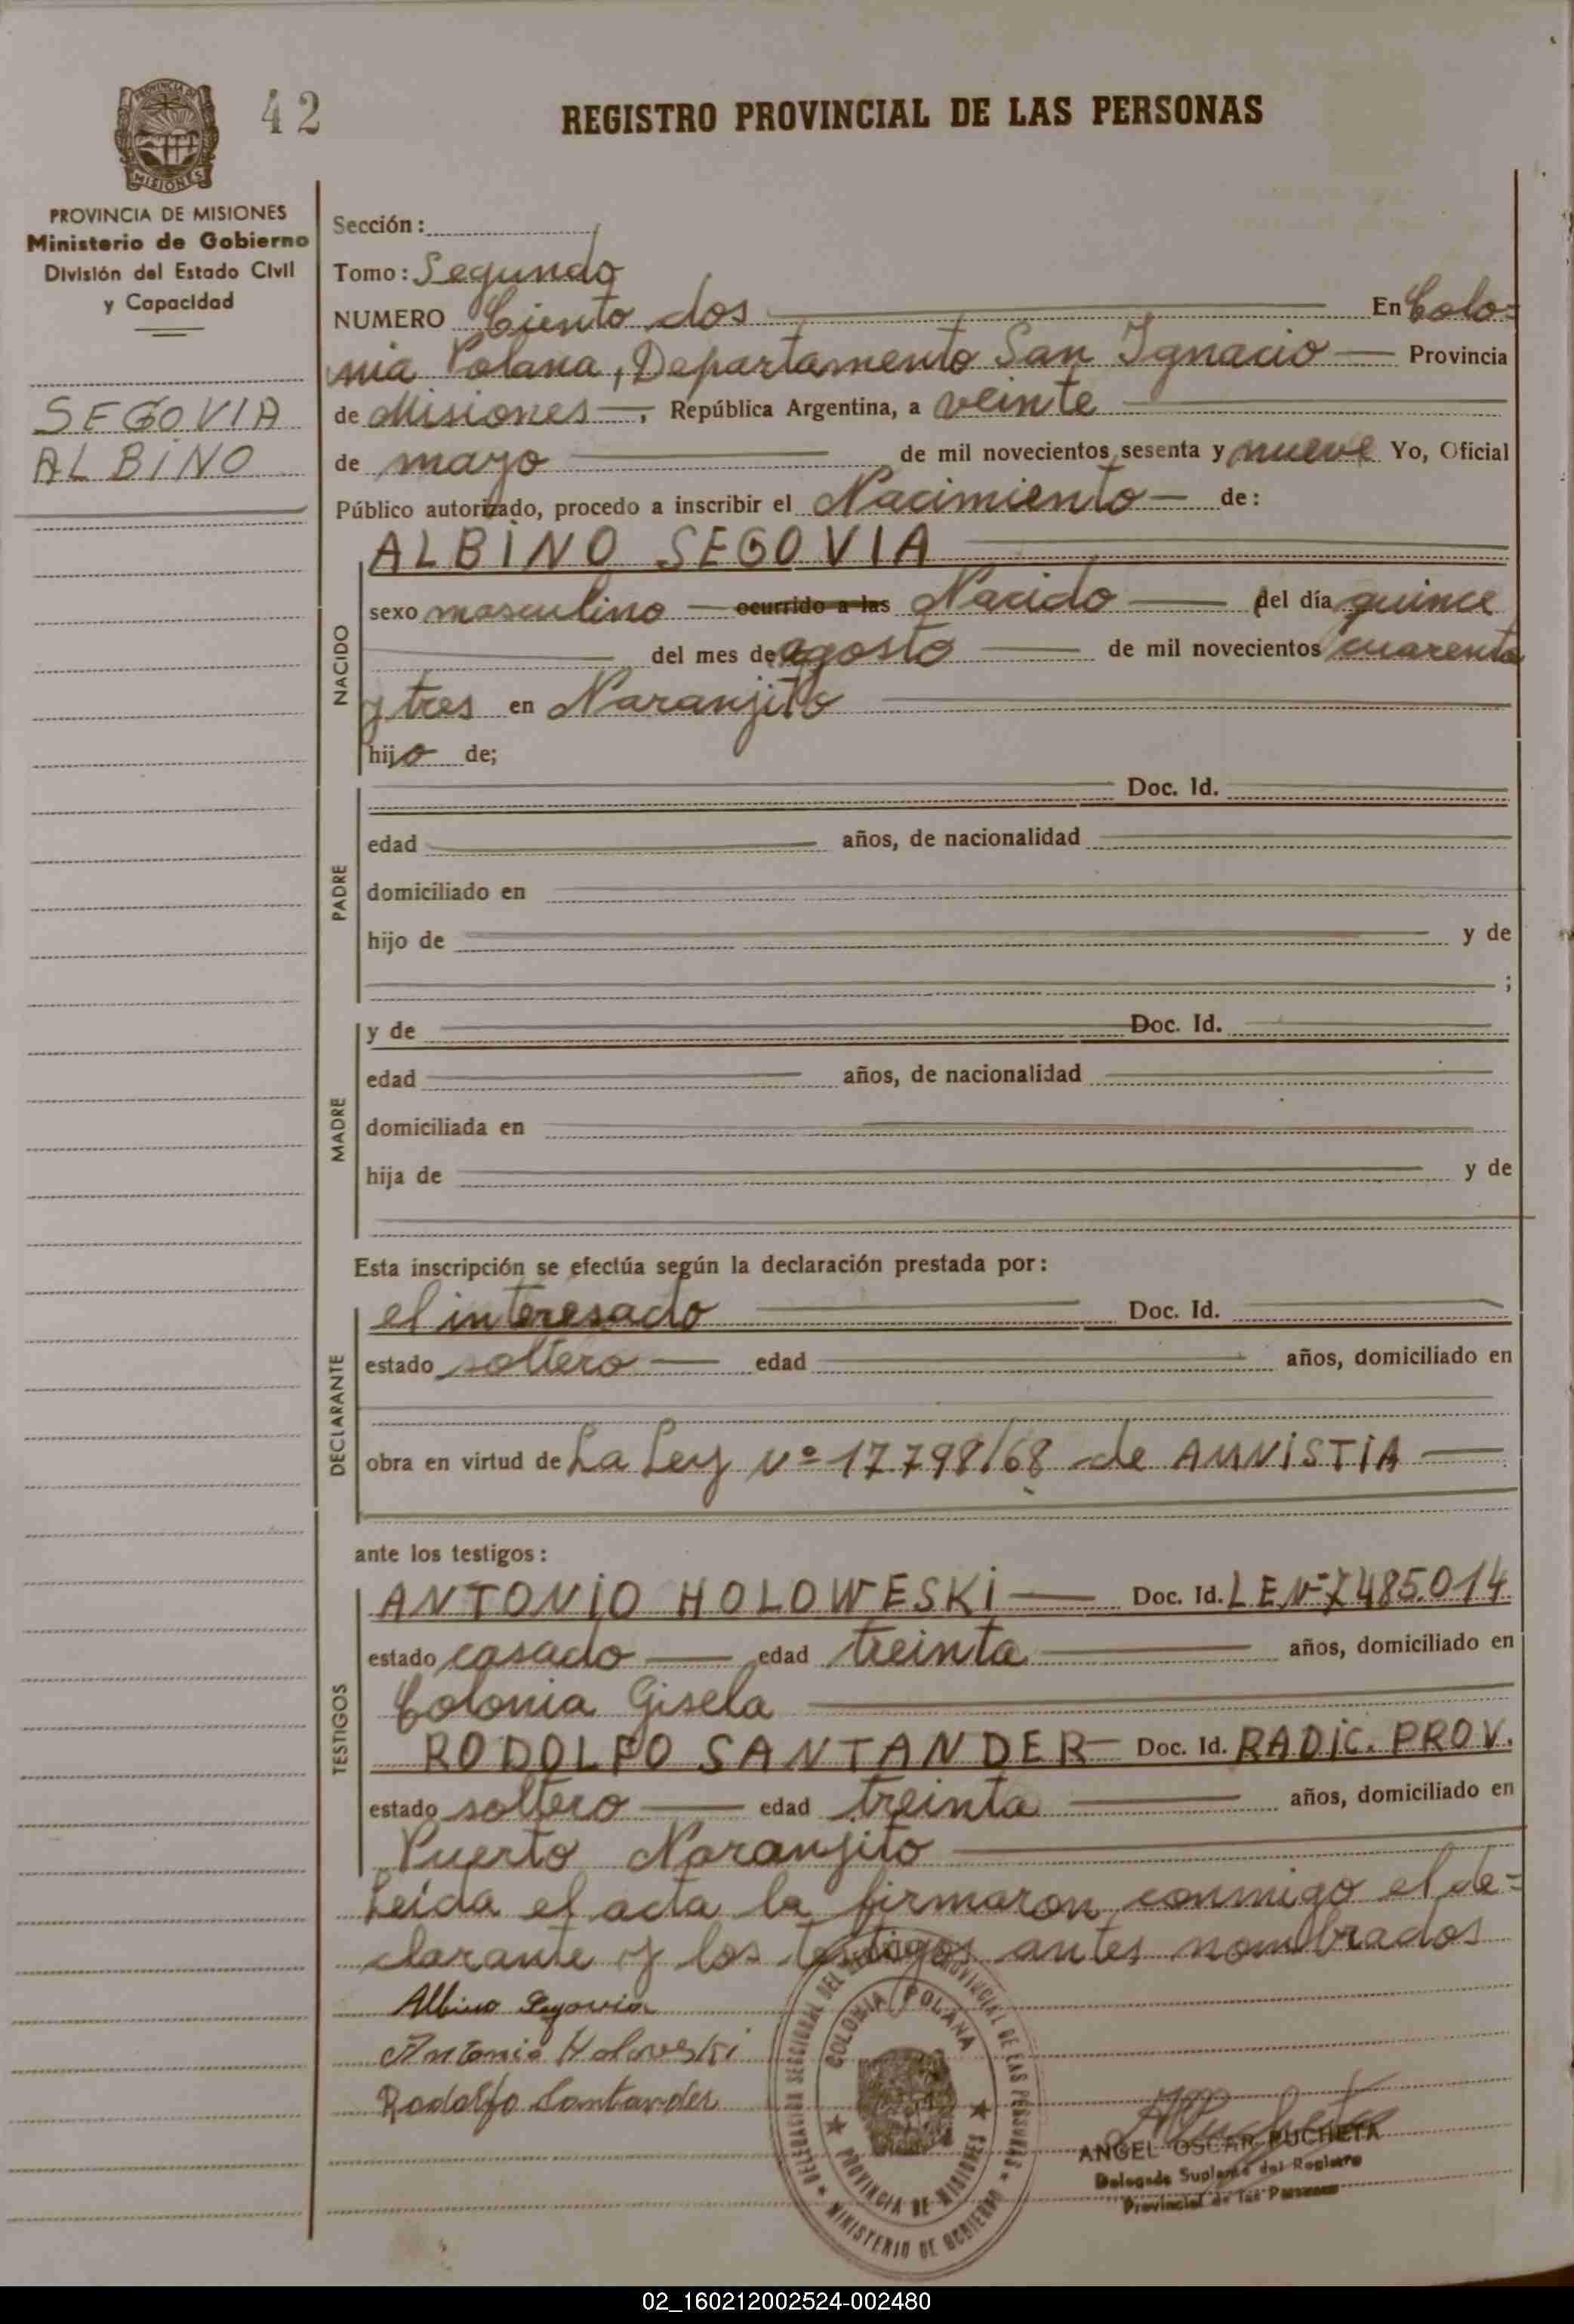 PROVINCIA DE
MISIONES
42
REGISTRO PROVINCIAL DE LAS PERSONAS
PROVINCIA DE MISIONES
Ministerio de Gobierno
División del Estado Civil
y Capacidad
SEGOVIA
ALBINO
Sección:
Tomo: Segundo
NUMERO Ciento dos En Colo=
nia Polana, Departamento San Ignacio Provincia
de Misiones, República Argentina, a veinte
de mayo de mil novecientos sesenta y nueve Yo, Oficial
Público autorizado, procedo a inscribir el Nacimiento de:
NACIDO
ALBINO SEGOVIA
sexo masculino ocurrido a las Nacido del día quince
del mes de agosto de mil novecientos cuarenta
y tres en Naranjito
hijo de;
PADRE
Doc. Id.
edad años, de nacionalidad
domiciliado en
hijo de y de
;
MADRE
y de Doc. Id.
edad años, de nacionalidad
domiciliada en
hija de y de
Esta inscripción se efectúa según la declaración prestada por:
DECLARANTE
el interesado Doc. Id.
estado soltero edad años, domiciliado en
obra en virtud de La Ley Nº 17.798/68 de AMNISTIA
ante los testigos:
TESTIGOS
ANTONIO HOLOWESKI Doc. Id. L E Nº 7485.014
estado casado edad treinta años, domiciliado en
Colonia Gisela
RODOLFO SANTANDER Doc. Id. RADIC. PROV.
estado soltero edad treinta años, domiciliado en
Puerto Naranjito
Leída el acta la firmaron conmigo el de=
clarante y los testigos antes nombrados
Albino Segovia
Antonio Holoveski
Rodolfo Santander
DELEGACION SECCIONAL DEL PROVINCIAL DE LAS PERSONAS
COLONIA POLANA
PROVINCIA DE MISIONES
MINISTERIO DE GOBIERNO
ANGEL OSCAR PUCHETA
Delegado Suplente del Registro
Provincial de las Personas
02_160212002524-002480